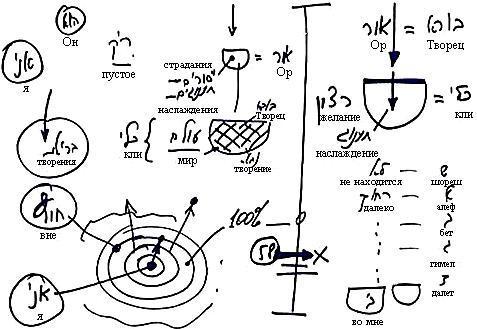 הוא
Он
אני
я
ריק
пустое
страдания
יסורים
תענוגים
наслаждения
= אור
Ор
творения
כלי
кли
עולם
мир
בורא
Творец
творение
חוץ
вне
100%
אני
я
X
אור
Ор
בורא
Творец
רצון
желание
= כלי
кли
תענוג
наслаждение
не находится
ש
шореш
רחוק
далеко
א
алеф
ב
бет
ג
гимел
ד
далет
во мне